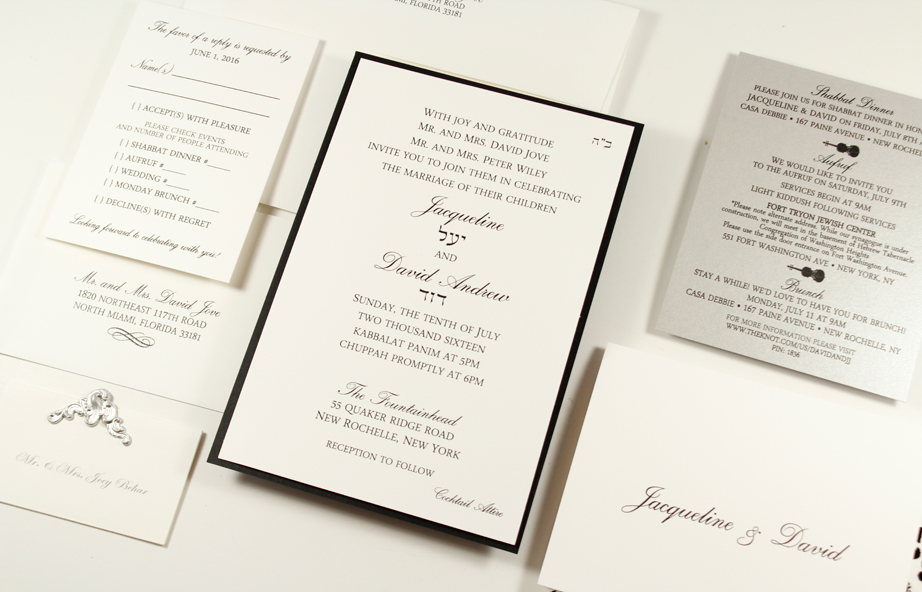 MIAMI, FLORIDA 33181
The favor of a reply is requested by
JUNE 1, 2016
Name(s)
[ ] ACCEPT(S) WITH PLEASURE
PLEASE CHECK EVENTS
AND NUMBER OF PEOPLE ATTENDING
[ ] SHABBAT DINNER #
[ ] AUFRUF #
[ ] WEDDING #
[ ] MONDAY BRUNCH #
[ ] DECLINE(S) WITH REGRET
Looking forward to celebrating with you!
Mr. and Mrs. David Jove
1820 NORTHEAST 117TH ROAD
NORTH MIAMI, FLORIDA 33181
Mr. & Mrs. Joey Behar
ב"ה
WITH JOY AND GRATITUDE
MR. AND MRS. DAVID JOVE
MR. AND MRS. PETER WILEY
INVITE YOU TO JOIN THEM IN CELEBRATING
THE MARRIAGE OF THEIR CHILDREN
Jacqueline
יעל
AND
David Andrew
דוד
SUNDAY, THE TENTH OF JULY
TWO THOUSAND SIXTEEN
KABBALAT PANIM AT 5PM
CHUPPAH PROMPTLY AT 6PM
The Fountainhead
55 QUAKER RIDGE ROAD
NEW ROCHELLE, NEW YORK
RECEPTION TO FOLLOW
Cocktail Attire
Shabbat Dinner
PLEASE JOIN US FOR SHABBAT DINNER IN HO
JACQUELINE & DAVID ON FRIDAY, JULY 8TH A
CASA DEBBIE • 167 PAINE AVENUE • NEW ROCHEL
Aufruf
WE WOULD LIKE TO INVITE YOU
TO THE AUFRUF ON SATURDAY, JULY 9TH
SERVICES BEGIN AT 9AM
LIGHT KIDDUSH FOLLOWING SERVICES
FORT TRYON JEWISH CENTER
*Please note alternate address. While our synagogue is under
construction, we will meet in the basement of Hebrew Tabernacle
Congregation of Washington Heights
Please use the side door entrance on Fort Washington Avenue.
551 FORT WASHINGTON AVE • NEW YORK, NY
Brunch
STAY A WHILE! WE'D LOVE TO HAVE YOU FOR BRUNCH!
MONDAY, JULY 11 AT 9AM
CASA DEBBIE • 167 PAINE AVENUE • NEW ROCHELLE, NY
FOR MORE INFORMATION PLEASE VISIT
WWW.THEKNOT.COM/US/DAVIDANDJJ
PIN: 1836
Jacqueline & David